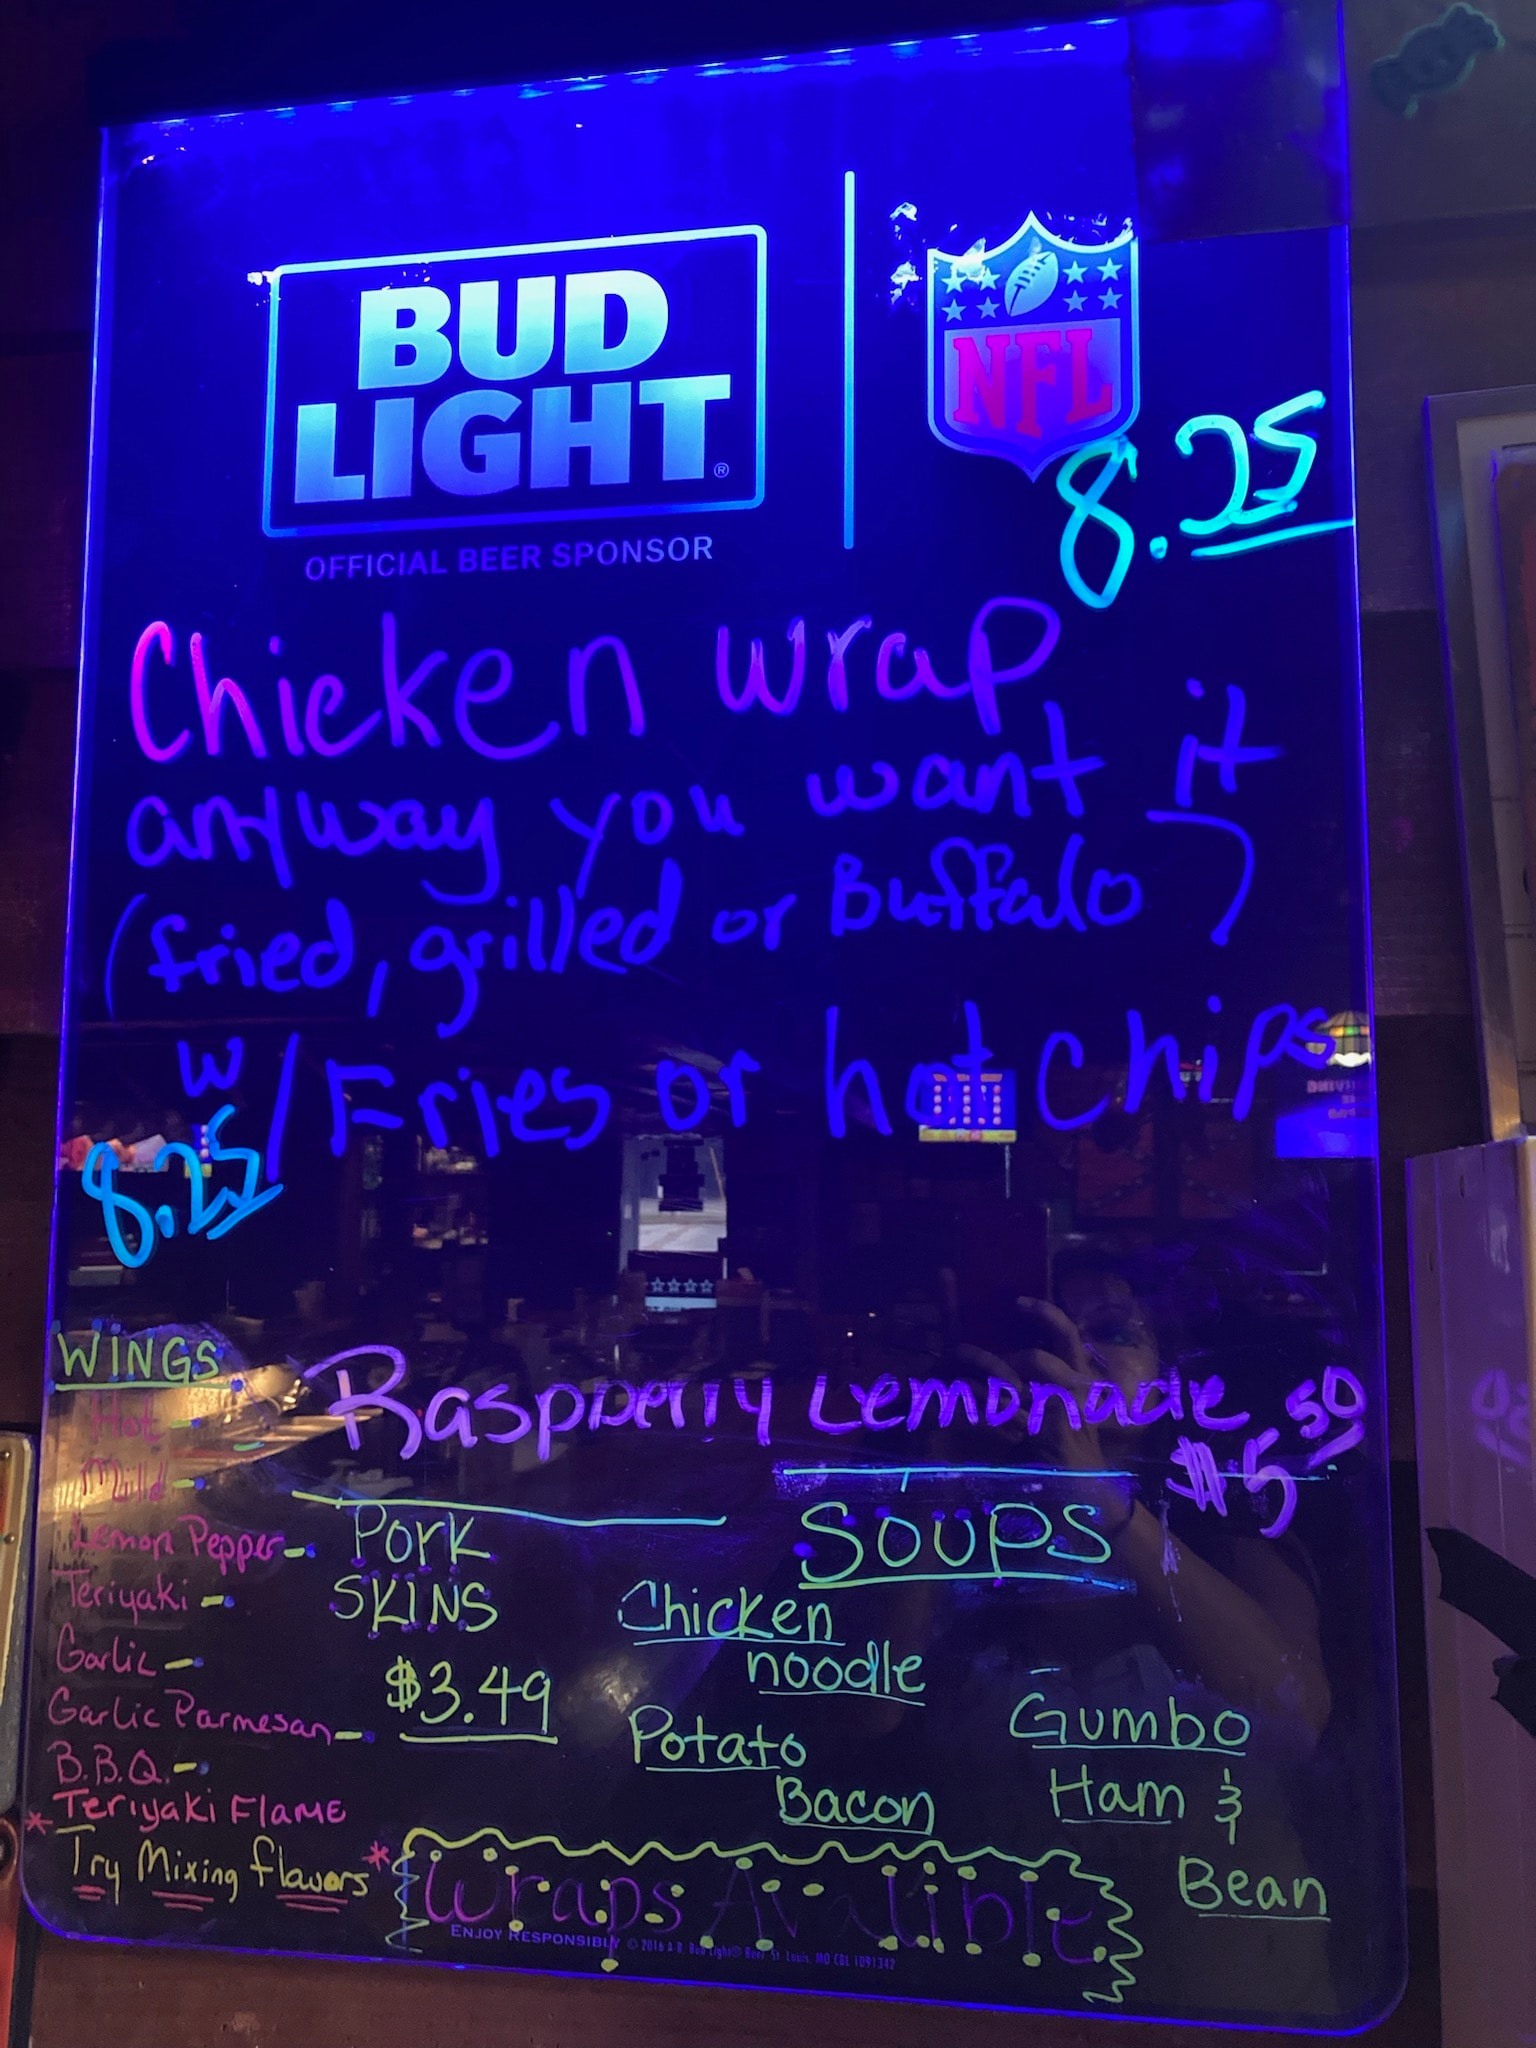 BUD
LIGHT®
OFFICIAL BEER SPONSOR
NFL
8.25
Chicken wrap
anyway you want it
(fried, grilled or Buffalo)
w/Fries or hot chips
8.25
WINGS
Hot -
Mild -
Lemon Pepper -
Teriyaki -
Garlic -
Garlic Parmesan -
B.B.Q. -
Teriyaki FLAME
* Try Mixing flavors *
Raspberry Lemonade
$5 50
PORK
SKINS
$3.49
SOUPS
Chicken
noodle
Potato
Bacon
Gumbo
Ham &
Bean
Wraps Avalible
ENJOY RESPONSIBLY © 2016 A-B, Bud Light® Beer, St. Louis, MO